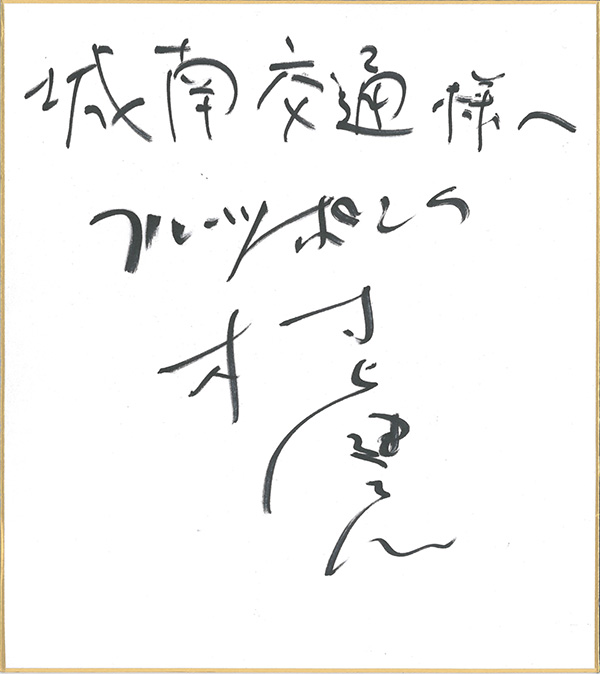 城南交通様へ
フルーツポンチ
村上健志